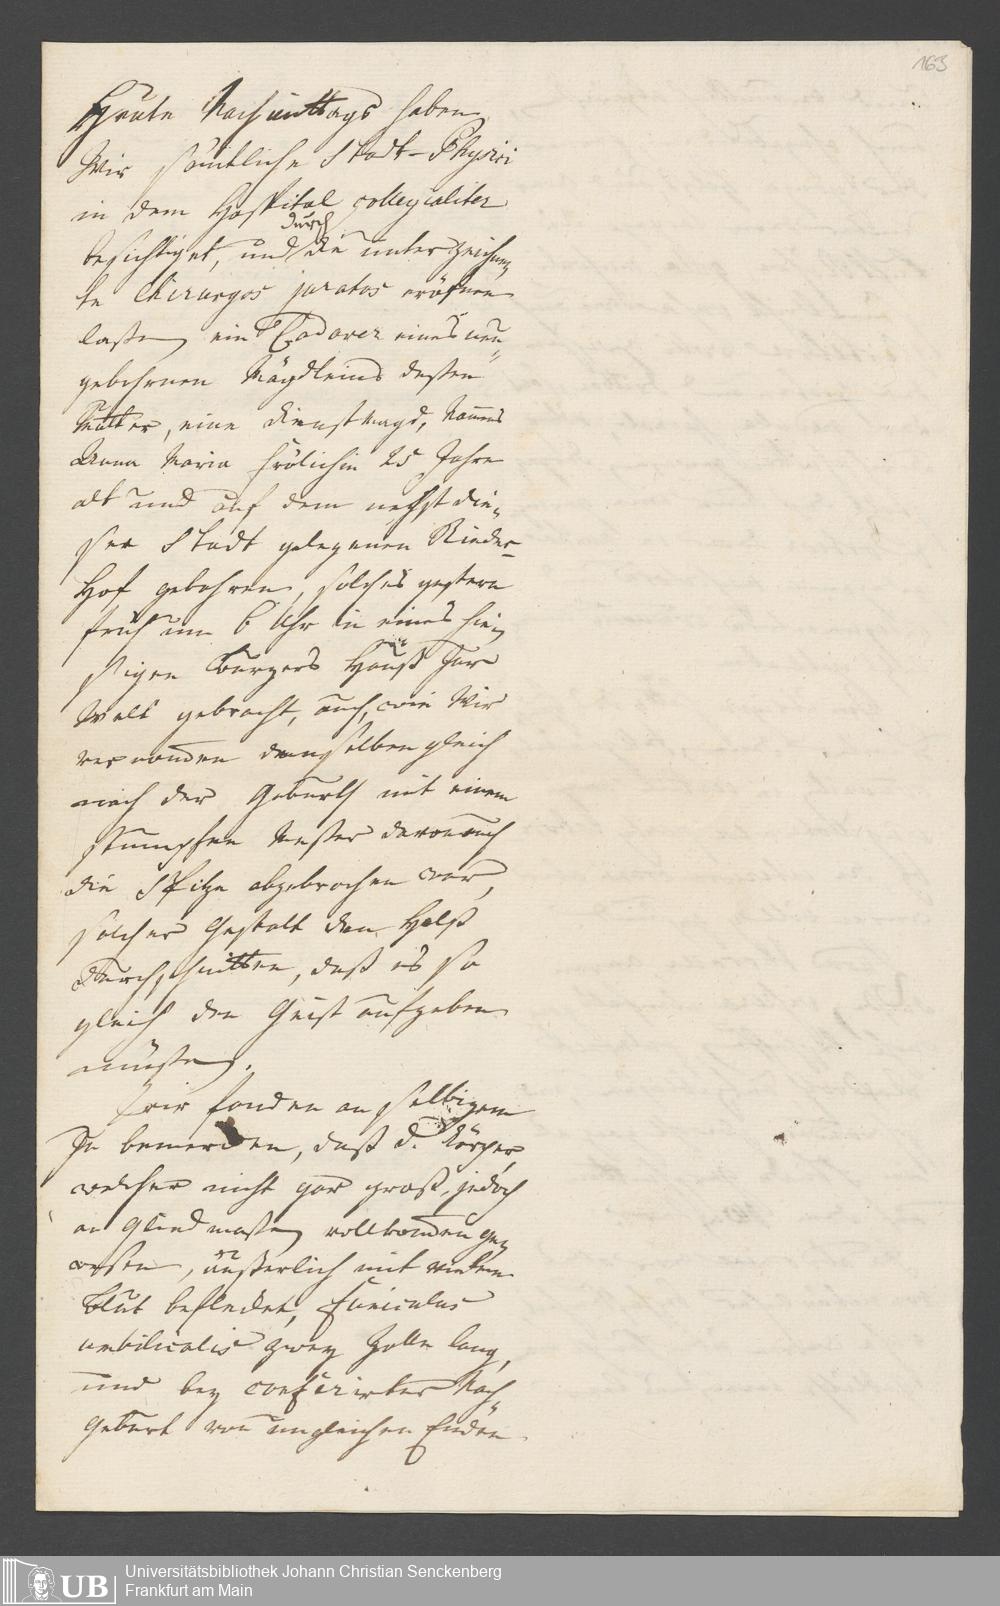 163
Heute Nachmittags haben
Wir sämtliche Stadt-Physici
in dem Hospital collegialiter
besichtiget, und durch die unterzeichne„
te Chirurgos juratos eröfnen
laßen ein Cadaver eines neu„
gebohrnen Mägdleins deßen
Mutter, eine Dienstmagd, Namens
Anna Maria Frölichin 25 Jahre
alt und auf dem nechst die„
ser Stadt gelegenen Rieder-
Hof gebohren, solches gestern
früh um 6 Uhr in eines hie„
sigen Burgers Hauß zur
Welt gebracht, auch, wie Wir
vernomen demselben gleich
nach der Geburth mit einem
stumpfen Meßer davon auch
die Spitze abgebrochen war,
solcher Gestalt den Halß
durchschnitten, daß es so
gleich den Geist aufgeben
müßen.
Wir fanden an selbigem
zu bemercken, daß d. Körper,
welcher nicht gar groß, jedoch
an Gliedmaßen vollkomen ge„
wesen, äußerlich mit vielem
Blut befleckt, Funiculus
umbilicalis zwey Zolle lang,
und bey conferirter Nach„
Geburt von ungleichen Enden
UB
Universitätsbibliothek Johann Christian Senckenberg
Frankfurt am Main